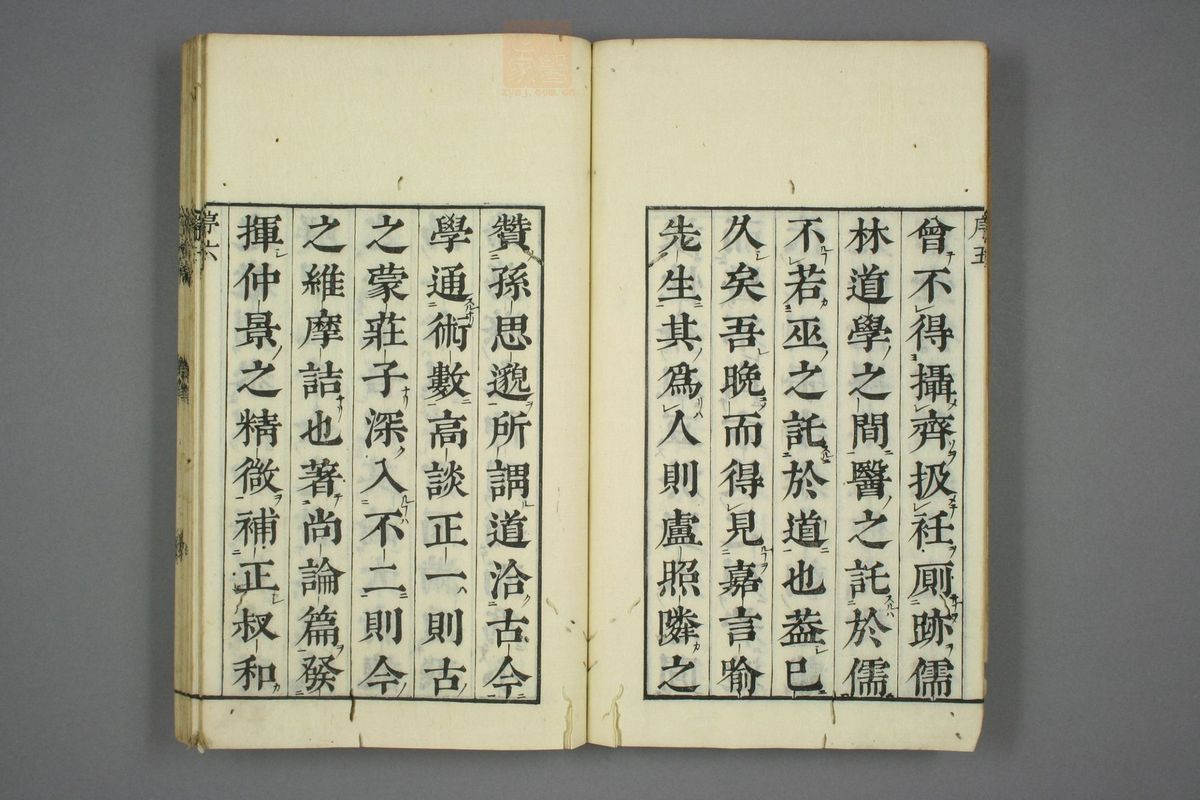 曾不得攝齊扱衽厠跡儒
林道學之間醫之託於儒
不若巫之託於道也葢已
久矣吾晚而得見嘉言喻
先生其爲人則盧照隣之
序五
贊孫思邈所謂道洽古今
學通術數高談正一則古
之蒙莊子深入不二則今
之維摩詰也著尚論篇發
揮仲景之精微補正叔和
序六